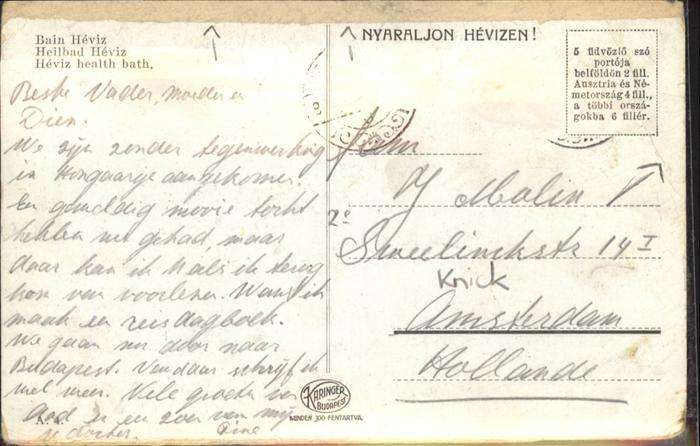 Bain Héviz
Heilbad Héviz
Héviz health bath.
NYARALJON HÉVIZEN!
5 üdvözlő szó
portója
belföldön 2 fill.
Ausztria és Né-
metország 4 fill.,
a többi orszá-
gokba 6 fillér.
Beste Vader, moeder en
Dien.
We zijn zonder tegenwerking
in Hongarije aangekomen.
En geweldig mooie tocht
hebben we gehad, maar
daar kan ik als ik terug
kom van voorlezen. Want ik
maak en reisdagboek.
We gaan nu door naar
Budapest. Vandaar schrijf ik
wel meer. Vele groeten van
en en zoen van mij
dochter. Dine
Fam
J Molin
2e
Sweelinckstr 14 I
Knick
Amsterdam
Hollande
A. 4.
KARINGER
BUDAPEST
MINDEN JOG FENTARTVA.